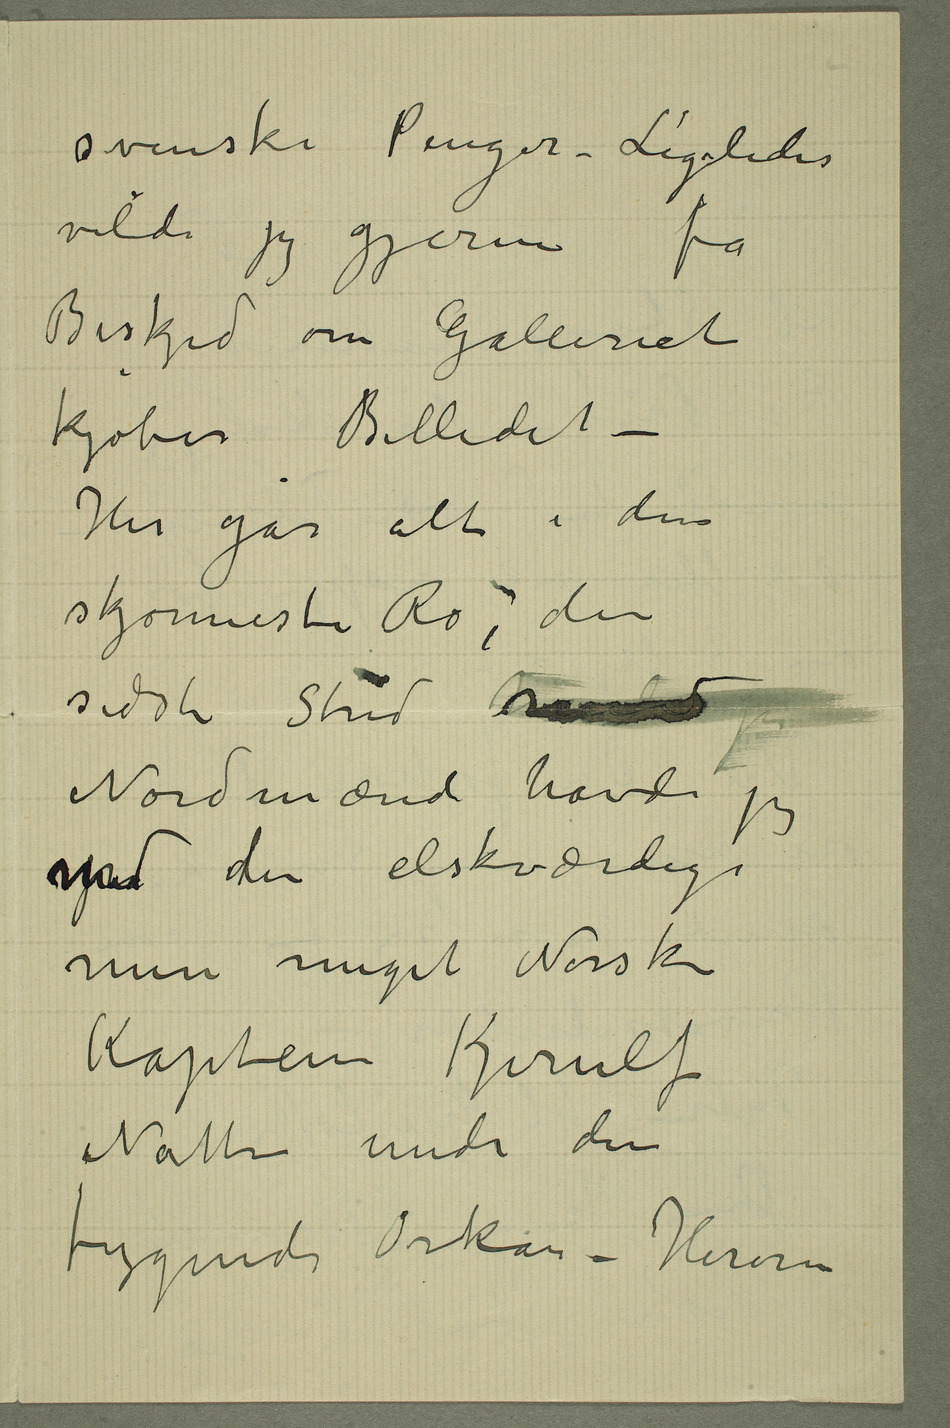 svenske Penger – Ligeledes
vilde jeg gjerne få
Beskjed om Galleriet
kjøber Billedet –
Her går alt i den
skjønneste Ro, den
sidste Strid
Nordmænd havde jeg
med den elskværdige
men meget Norske
Kaptein Kjerulf
Natten under den
frygende Orkan – Herom